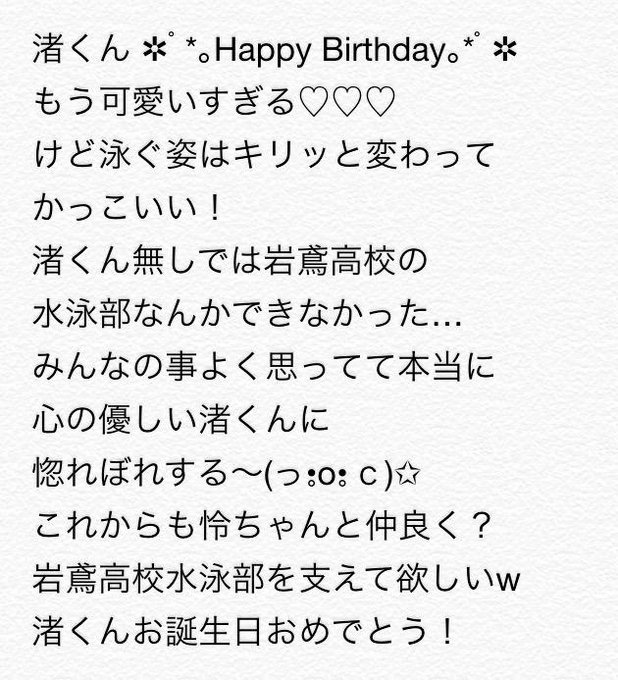 渚くん ✲ﾟ*｡Happy Birthday｡*ﾟ✲
もう可愛いすぎる♡♡♡
けど泳ぐ姿はキリッと変わって
かっこいい！
渚くん無しでは岩鳶高校の
水泳部なんかできなかった…
みんなの事よく思ってて本当に
心の優しい渚くんに
惚れぼれする〜(っ⁝o⁝ｃ)✩
これからも怜ちゃんと仲良く？
岩鳶高校水泳部を支えて欲しいw
渚くんお誕生日おめでとう！